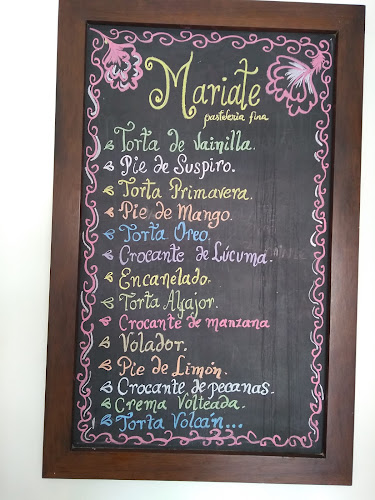 Mariate
pasteleria fina
Torta de Vainilla.
Pie de Suspiro.
Torta Primavera.
Pie de Mango.
Torta Oreo.
Crocante de Lúcuma.
Encanelado.
Torta Alfajor.
Crocante de manzana
Volador.
Pie de Limón.
Crocante de pecanas.
Crema Volteada.
Torta Volcán...